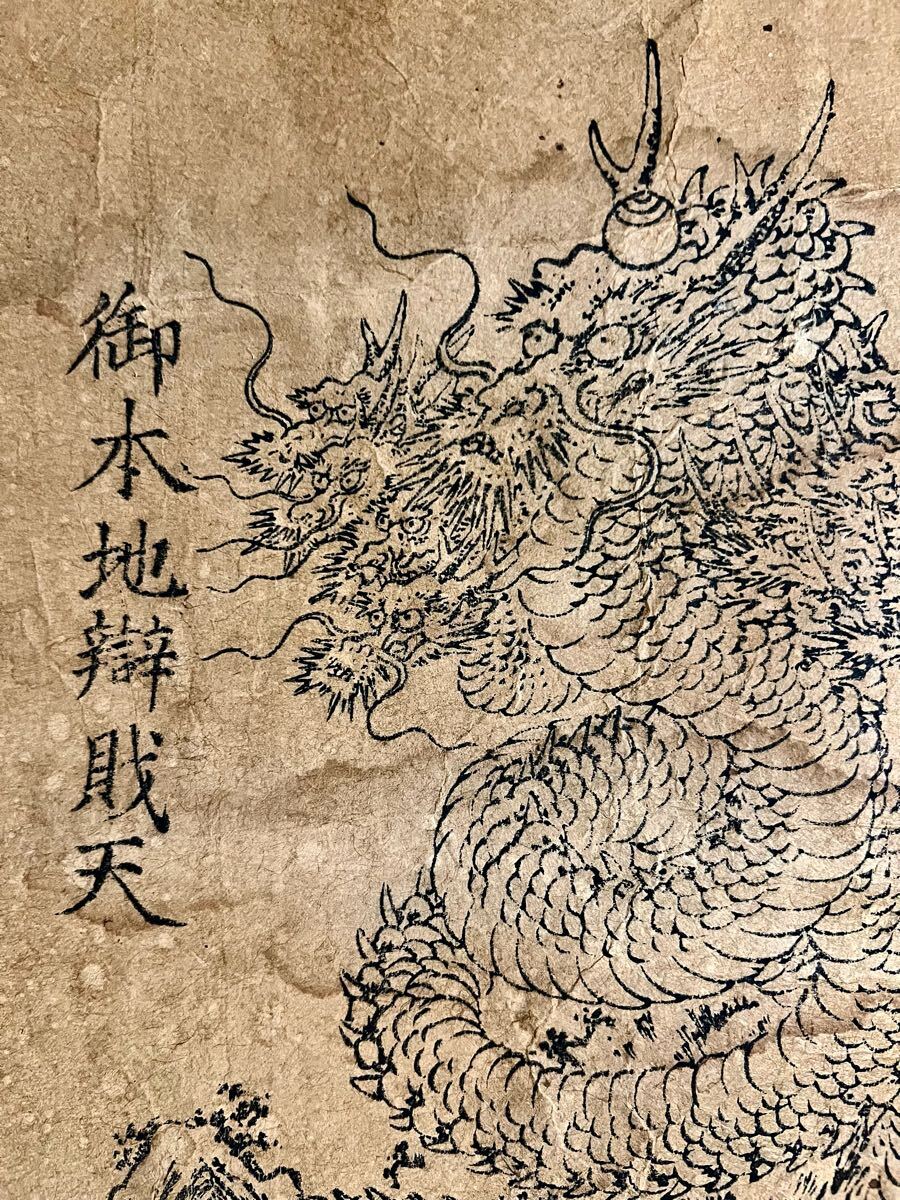 御本地辯財天